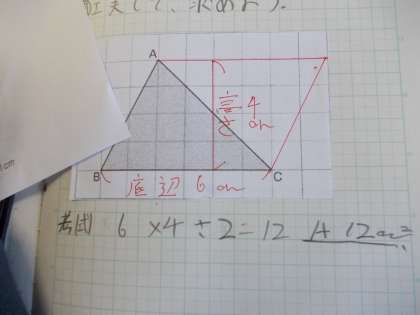 工夫して、求めよう。
A
高さ 4cm
B
C
底辺 6cm
cm
6×4÷2=12 A 12cm²